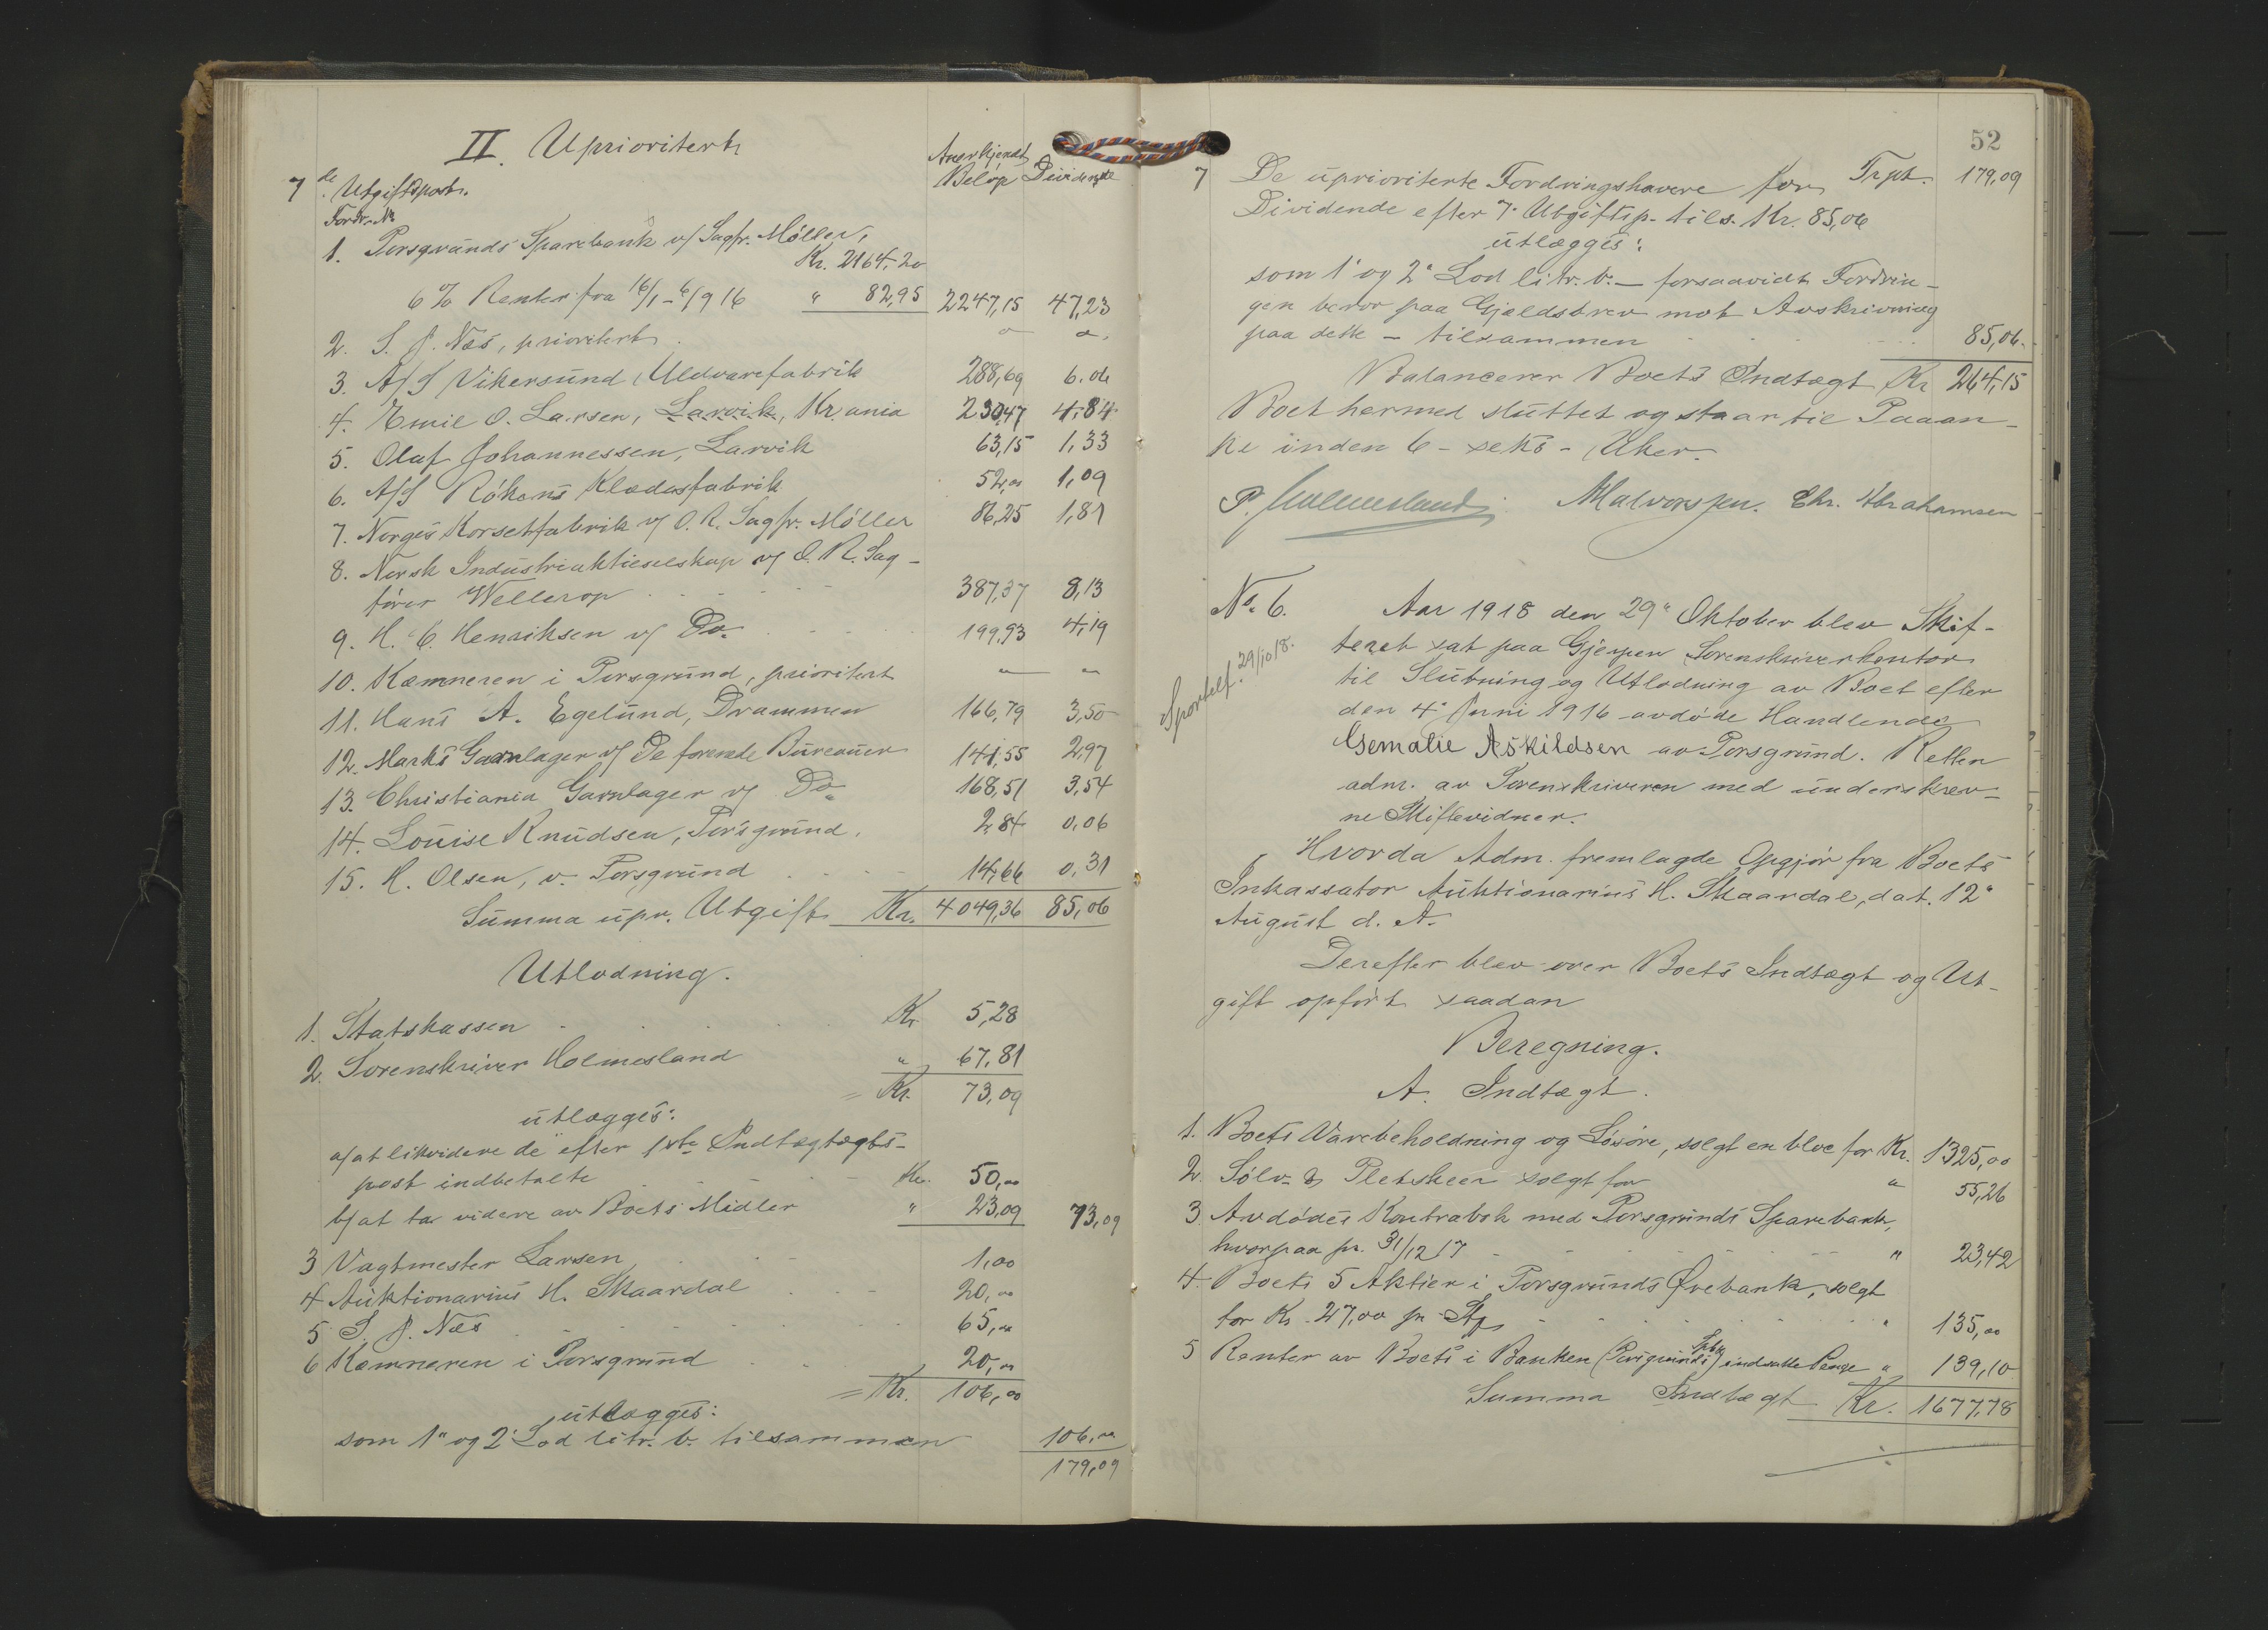 II. Uprioritert
Anerkjendt
Beløp Dividende
7de Utgiftspost.
Fordr. No
1. Porsgrunds Sparebank v/ Sagfr. Møller,
Kr. 2164,20
6 % Renter fra 16/1 - 6/9 16 " 82,95 2247,15 47,23
2. S. J. Næs, prioritert. " "
3. A/S Vikersund Uldvarefabrik 288,69 6.06
4. Emil O. Larsen, Larvik, Kr.ania 230,47 4,84
5. Olaf Johannessen, Larvik 63,15 1,33
6. A/S Røkens Klædesfabrik 52,00 1,09
7. Norges Korsetfabrik v/ O. R. Sagfr. Møller 86,25 1,81
8. Norsk Industriaktieselskap v/ O. R. Sag-
fører Wellerop 387,37 8,13
9. H. C. Henriksen v/ Do. 199,93 4,19
10. Kæmneren i Porsgrund, prioritert " "
11. Hans A. Egelund, Drammen 166,79 3,50
12. Marks Garnlager v/ De forenede Bureauer 141,55 2,97
13. Christiania Garnlager v/ Do 168,51 3,54
14. Louise Knudsen, Porsgrund. 2,84 0,06
15. H. Olsen, v. Porsgrund 14,66 0,31
Summa upr. Utgift Kr. 4049,36 85,06
Utlodning.
1. Statskassen Kr. 5,28
2. Sorenskriver Holmesland " 67,81
= Kr. 73,09
utlægges:
a/ at likvidere de efter 1ste Indtægtægts-
post indbetalte Kr. 50,00
b/ at ta videre av Boets Midler " 23,09 73,09
3 Vagtmester Larsen 1,00
4 Auktionarius H. Skaardal 20,00
5 S. J. Næs 65,00
6 Kæmneren i Porsgrund 20,00
= Kr. 106,00
utlægges:
som 1" og 2" Lod litr. b. tilsammen 106,00
179,09
52
Trpt. 179,09
7 De uprioriterte Fordringshavere for
Dividende efter 7. Utgiftsp. tils. Kr. 85,06
utlægges:
som 1" og 2" Lod litr. b. — forsaavidt Fordrin-
gen beror paa Gjældsbrev mot Avskrivning
paa dette — tilsammen 85,06.
Balancerer Boets Indtægt Kr 264,15
Boet hermed sluttet og staar til Paaan-
ke inden 6 - seks - Uker.
P. Holmesland. Chr. Abrahamsen
No. 6. Aar 1918 den 29" Oktober blev Skif-
Sportelf. 29/10 18.
teret sat paa Gjerpen Sorenskriverkontor
til Slutning og Utlodning av Boet efter
den 4" Juni 1916 avdøde Handlende
Gematie Askildsen av Porsgrund. Retten
adm. av Sorenskriveren med underskrev-
ne Skiftevidner.
Hvorda Adm. fremlagde Opgjør fra Boets
Inkassator Auktionarius H. Skaardal, dat. 12"
August d. A.
Derefter blev over Boets Indtægt og Ut-
gift opført saadan
Beregning.
A. Indtægt.
1. Boets Varebeholdning og Løsøre, solgt en bloc for Kr. 1325,00
2. Sølv- & Pletskeer solgt for " 55,26
3 Avdødes Kontrabok med Porsgrunds Sparebank,
hvorpaa pr. 31/12 17 " 23,42
4. Boets 5 Aktier i Porsgrunds Ørebank, solgt
for Kr. 27,00 pr. St. " 135,00
5 Renter av Boets i Banken (Porsgrunds Spbk) indsatte Penge " 139,10
Summa Indtægt Kr. 1677,78